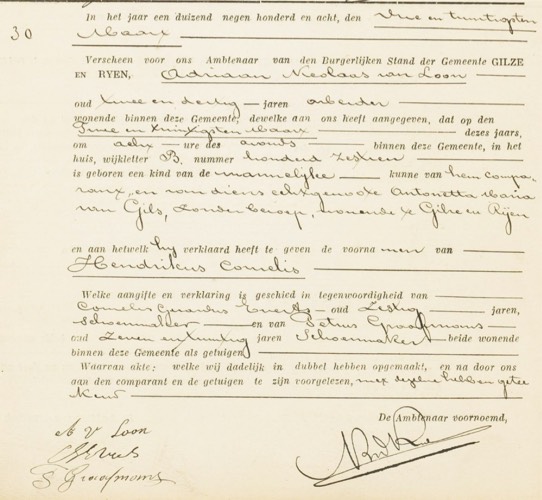 30
In het jaar een duizend negen honderd en acht, den Drie en twintigsten
Maart
Verscheen voor ons Ambtenaar van den Burgerlijken Stand der Gemeente GILZE
EN RYEN, Adriaan Nicolaas van Loon
oud twee en dertig jaren arbeider
wonende binnen deze Gemeente, dewelke aan ons heeft aangegeven, dat op den
Twee en twintigsten Maart dezes jaars,
om acht ure des avonds binnen deze Gemeente, in het
huis, wijkletter B. nummer honderd zestien
is geboren een kind van de mannelijke kunne van hem compa-
rant, en van diens echtgenoote Antonetta Maria
van Gils, zonder beroep, wonende te Gilze en Rijen
en aan hetwelk hij verklaard heeft te geven de voorna men van
Hendrikus Cornelis
Welke aangifte en verklaring is geschied in tegenwoordigheid van
Cornelis Gerardus Everts oud Zestig jaren,
Schoenmaker en van Petrus Graafmans
oud Zeven en twintig jaren Schoenmaker beide wonende
binnen deze Gemeente als getuigen
Waarvan akte; welke wij dadelijk in dubbel hebben opgemaakt, en na door ons
aan den comparant en de getuigen te zijn voorgelezen, met dezelve hebben getee
kend
De Ambtenaar voornoemd,
A V Loon
Everts
P Graafmans